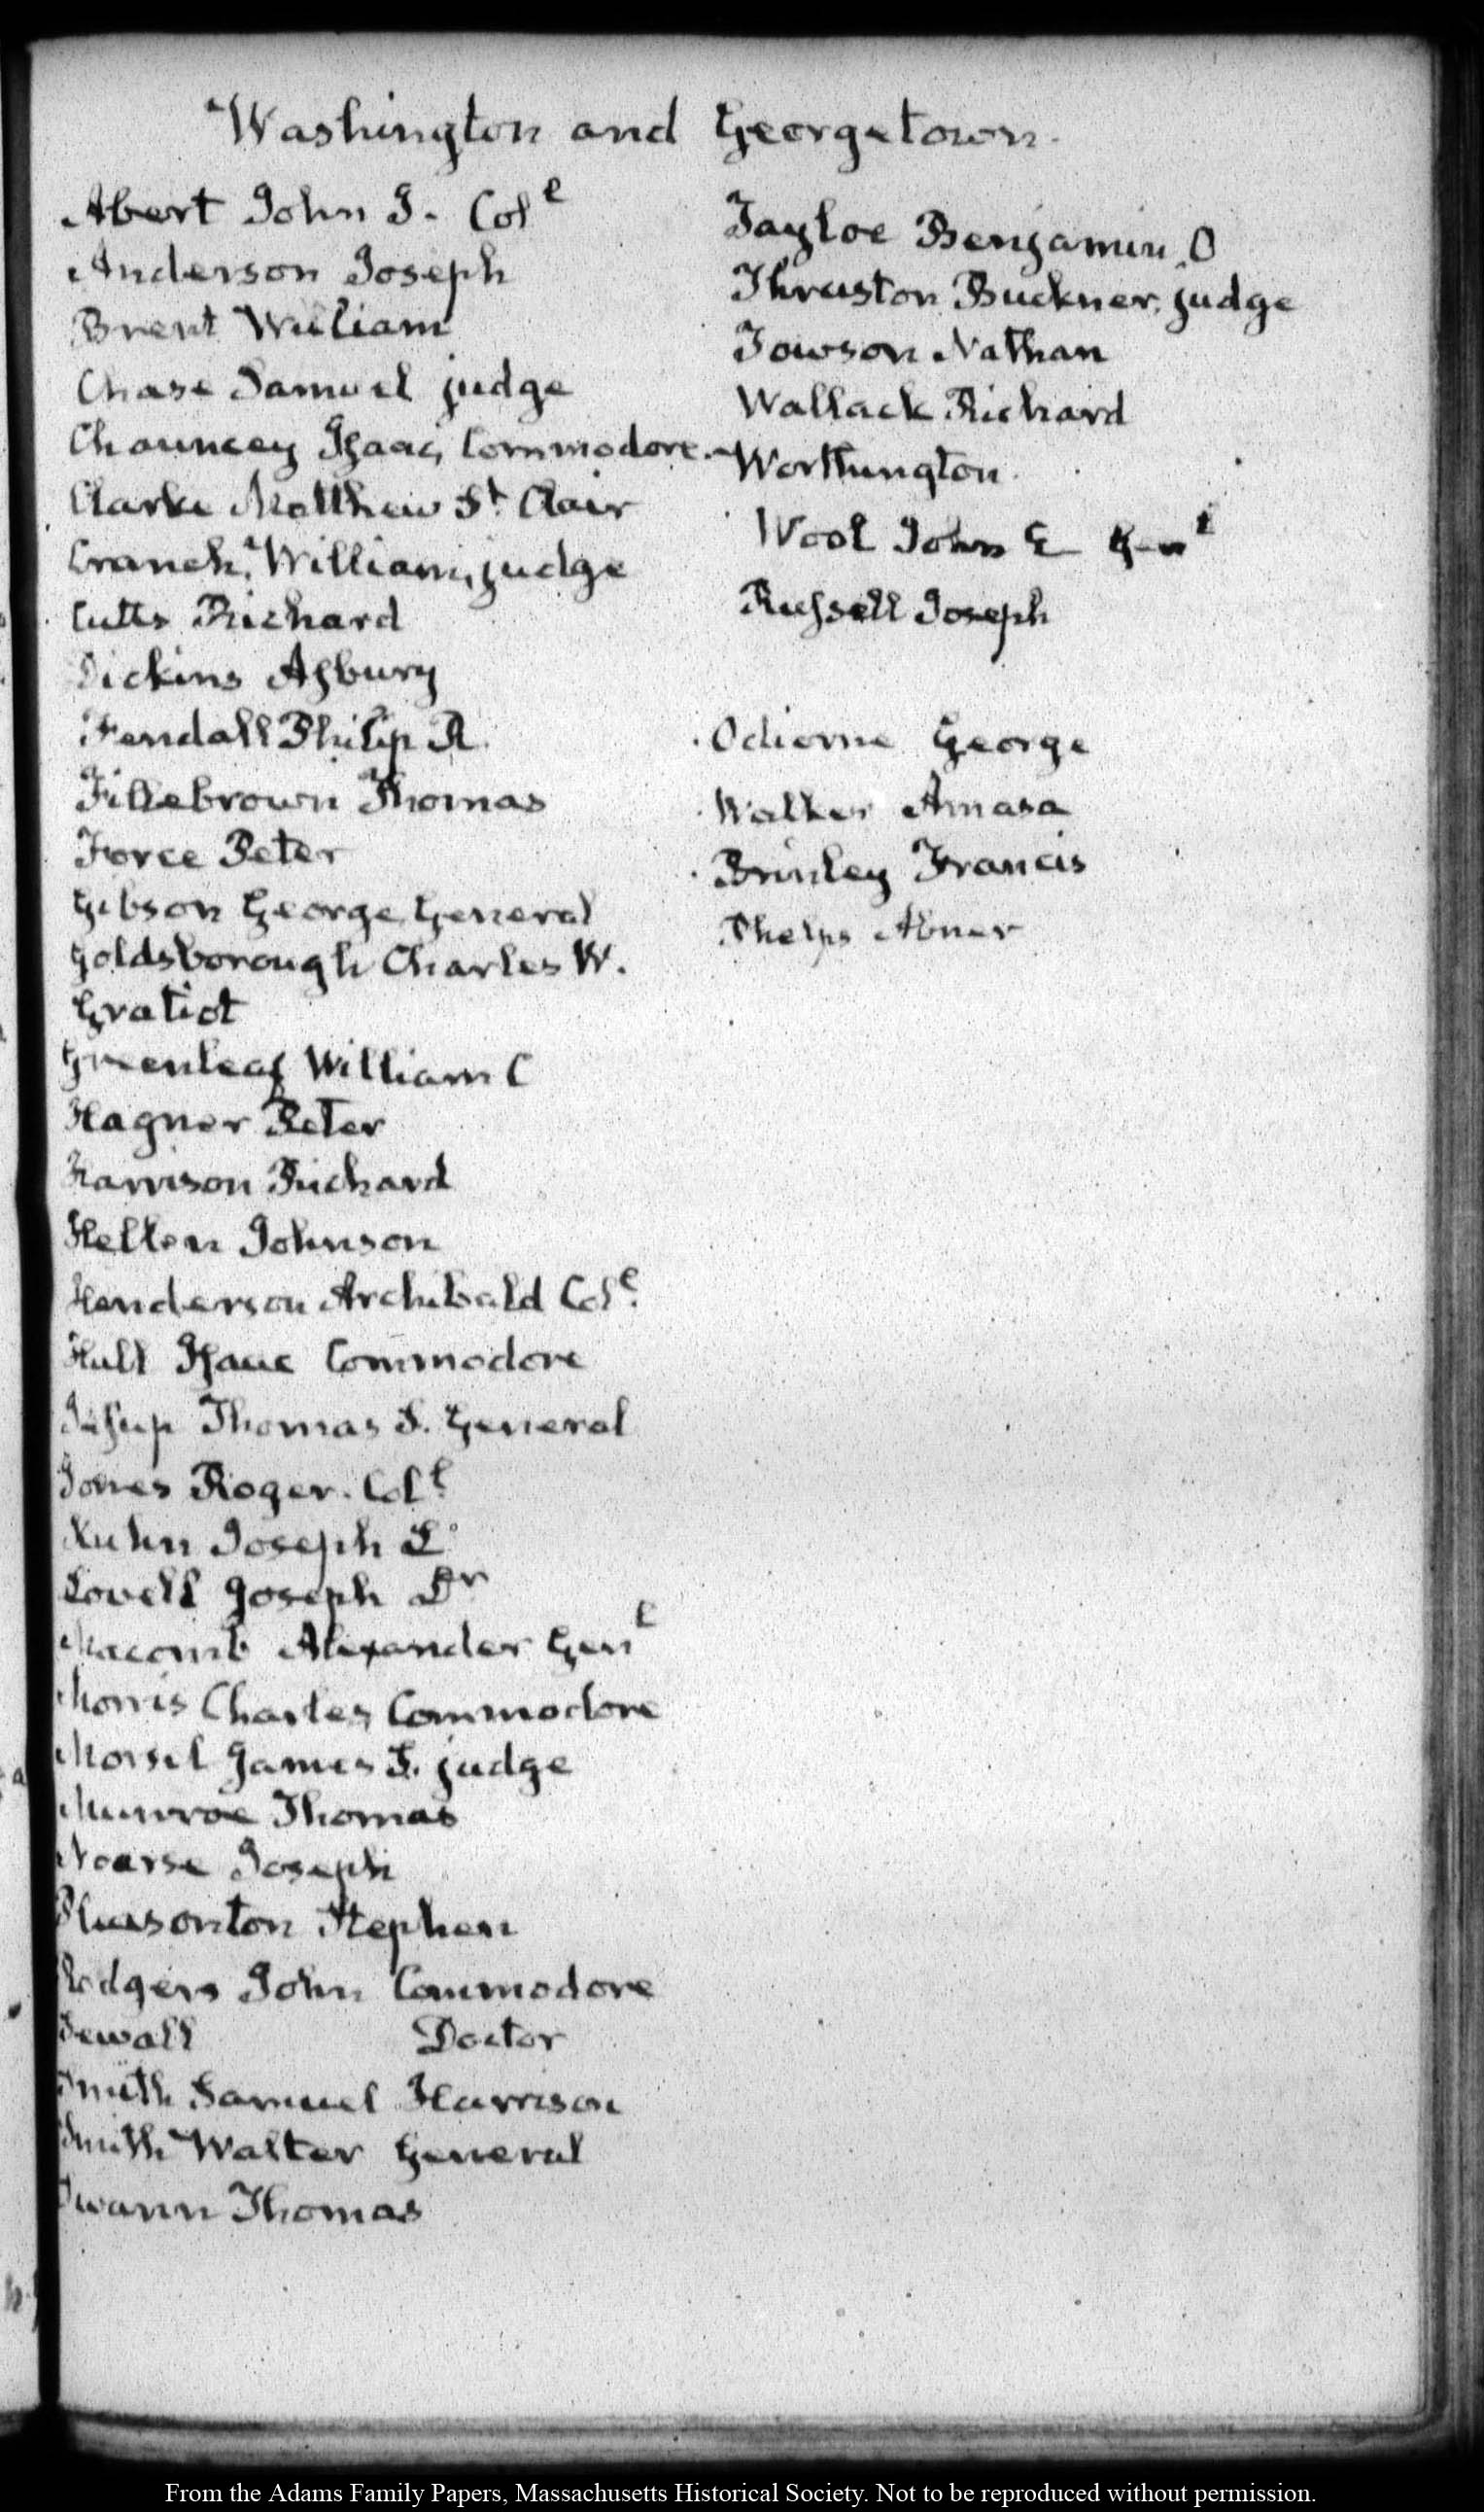 Washington and Georgetown.
Abert John J. Col.l
Anderson Joseph
Brent William
Chase Samuel judge
Chauncey Isaac, Commodore.
Clarke Matthew St. Clair
Cranch, William, judge
Cutts Richard
Dickins Asbury
Fendall Philip R.
Fillebrown Thomas
Force Peter
Gibson George, General
Goldsborough Charles W.
Gratiot
Greenleaf William C
Hagner Peter
Harrison Richard
Hellen Johnson
Henderson Archibald Col.l
Hull Isaac Commodore
Jesup Thomas S. General
Jones Roger. Col.l
Kuhn Joseph L
Lovell Joseph Dr
Macomb Alexander Genl
Morris Charles, Commodore
Morsel James S. judge
Munroe Thomas
Nourse Joseph
Pleasonton Stephen
Rodgers John Commodore
Sewall Doctor
Smith Samuel Harrison
Smith Walter General
Swann Thomas
Tayloe Benjamin, O
Thruston Buckner, judge
Towson Nathan
Wallack Richard
Worthington
Wool John E Genl
Russell Joseph
Odiorne George
Walker Amasa
Brinley Francis
Phelps Abner
From the Adams Family Papers, Massachusetts Historical Society. Not to be reproduced without permission.